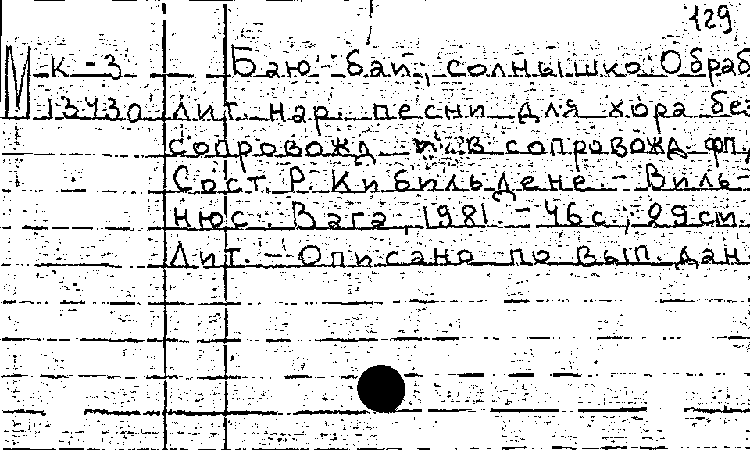 129
М К-3 Баю-бай, солнышко. Обраб
13430 Лит. нар. песни для хора без
сопровожд. и в сопровожд. фп.
Сост. Р. Кибильдене. - Виль-
нюс: Вага, 1981. - 46 с.; 29 см.
Лит. - Описано по вып. дан.